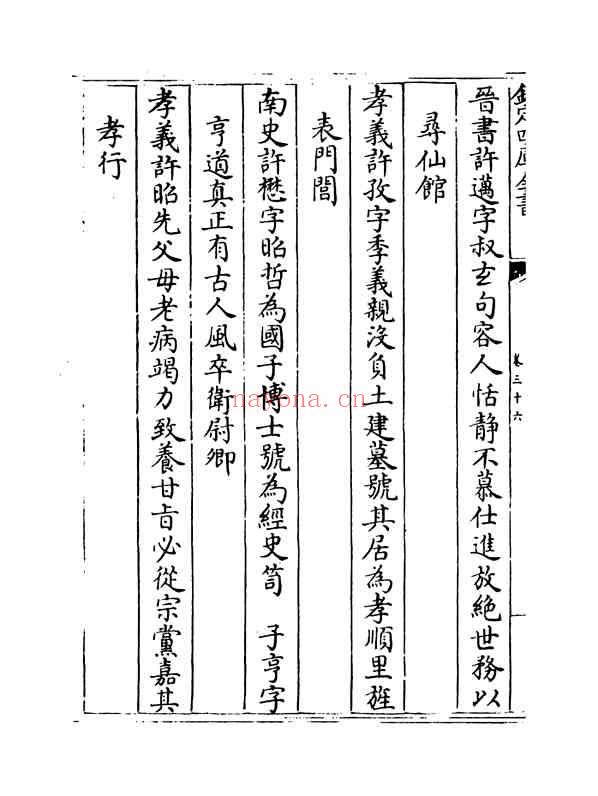 欽定四庫全書
卷三十六
晉書許邁字叔玄句容人恬静不慕仕進放絶世務以
尋仙館
孝義許孜字季義親沒負土建墓號其居為孝順里旌
表門閭
南史許懋字昭哲為國子博士號為經史笥　子亨字
亨道真正有古人風卒衛尉卿
孝義許昭先父母老病竭力致養甘旨必從宗黨嘉其
孝行
nayona.cn